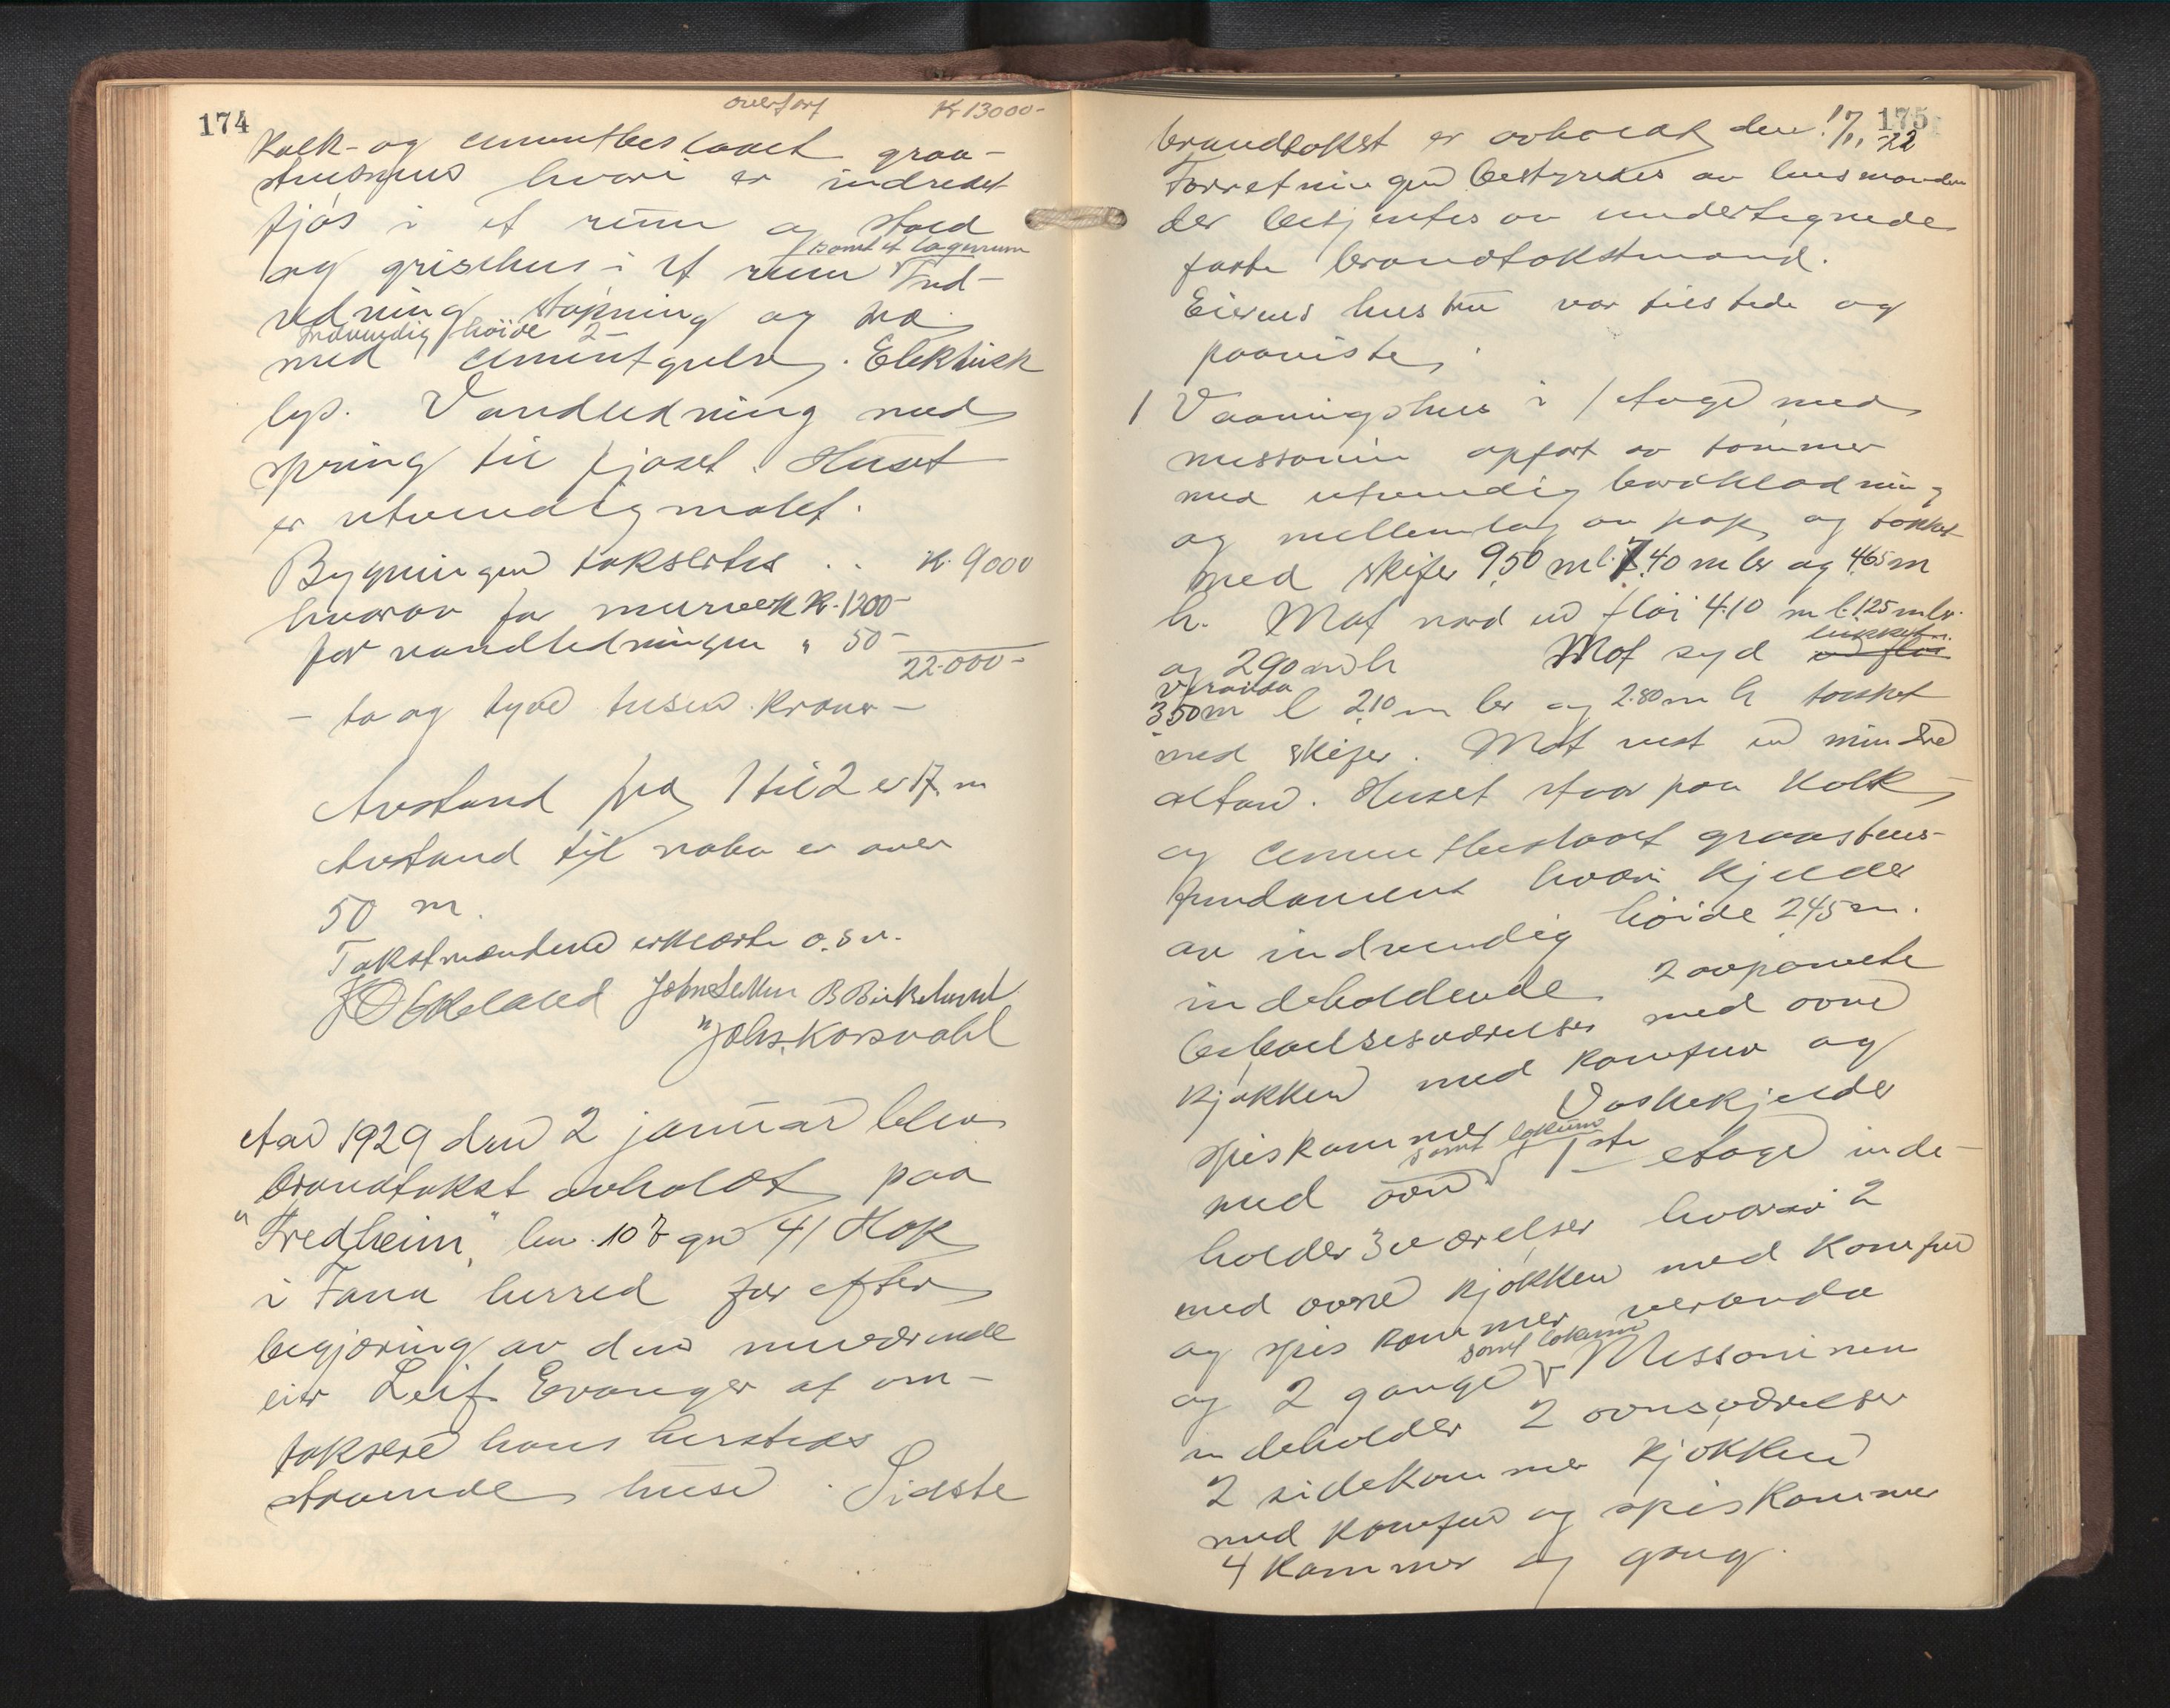 174
overført Kr 13000-
Kalk- og cementbeslaaet graa-
stensmur hvori er indredet
fjøs i et rum og stald
samt et lagerrum
og grisehus i et rum Ind-
redning støpning og træ
Indvendig høide 2
med cementgulv. Elektrisk
lys. Vandledning med
spring til fjøset. Huset
er utvendig malet.
Bygningen takseres .. Kr. 9000
hvorav for murverk Kr. 1200-
for vandledningen " 50-
22.000-
- to og tyve tusen kroner -
Avstand fra 1 til 2 er 17 m
Avstand til nabo er over
50 m.
Takstmændene erklærte o.s.v.
John Sellen B Birkelund
Johs. Korsvold
Aar 1929 den 2 januar blev
brandtakst avholdt paa
"Fredheim" bnr. 107 gnr 41 Hop
i Fana herred for efter
begjæring av den nuværende
eier Leif Evanger at om-
taksere hans hersteds
staaende huse. Sidste
175
brandtakst er avholdt den 17/11 22
Forretningen bestyredes av lensmanden
der betjentes av undertegnede
faste brandtakstmænd.
Eierens hustru var tilstede og
paaviste
1 Vaaningshus i 1 etage med
messanin opført av tømmer
med utvendig bordklædning
og mellemlag av pap og tækket
med skifer 9.50 m l. 7.40 m br og 4.65 m
h. Mot nord en fløi 4.10 m l. 1.25 m br.
og 2.90 m h Mot syd lukket en fløi
veranda
3.50 m l 2.10 m br og 2.80 m h tækket
med skifer. Mot vest en mindre
altan. Huset staar paa Kalk
og cementbeslaaet graastens-
fundament hvori kjelder
av indvendig høide 2.45 m.
indeholdende 2 avpanelte
beboelsesværelser med ovne
kjøkken med komfur og
spiskammer Vaskekjelder
samt lokum
med ovn 1ste etage inde-
holder 3 værelser hvorav 2
med ovne kjøkken med komfur
og spiskammer veranda
samt lokum
og 2 gange Messaninen
indeholder 2 ovnsværelser
2 sidekammer kjøkken
med komfur og spiskammer
4 kammer og gang.